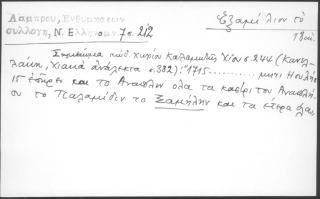 Λάμπρου, Ενθυμήσεων
συλλογή, Ν. Ελληνομν 7 σ. 212
Ἑξαμίλιον τό
18αι.
Σημείωμα κώδ. χωρίου Καλαμωτῆς Χίου σ. 244 (Κανελ-
λάκη, Χιακά ἀνάλεκτα σ. 382): "1715 .......... μηνι Ηουλίου
15 ἐπῆρεν και το Αναπλιν ολα τα κάστρι του Αναπλί-
ου το Παλαμίδιν το Ξαμήλην και τα έτερα